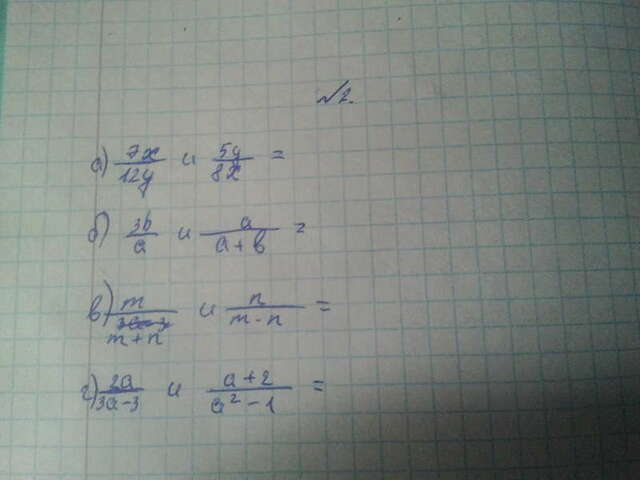 №2.
а) 7x/12y и 5y/8x =
б) 3b/a и a/a+b =
в) m/m+n и n/m-n =
г) 2a/3a-3 и a+2/a²-1 =